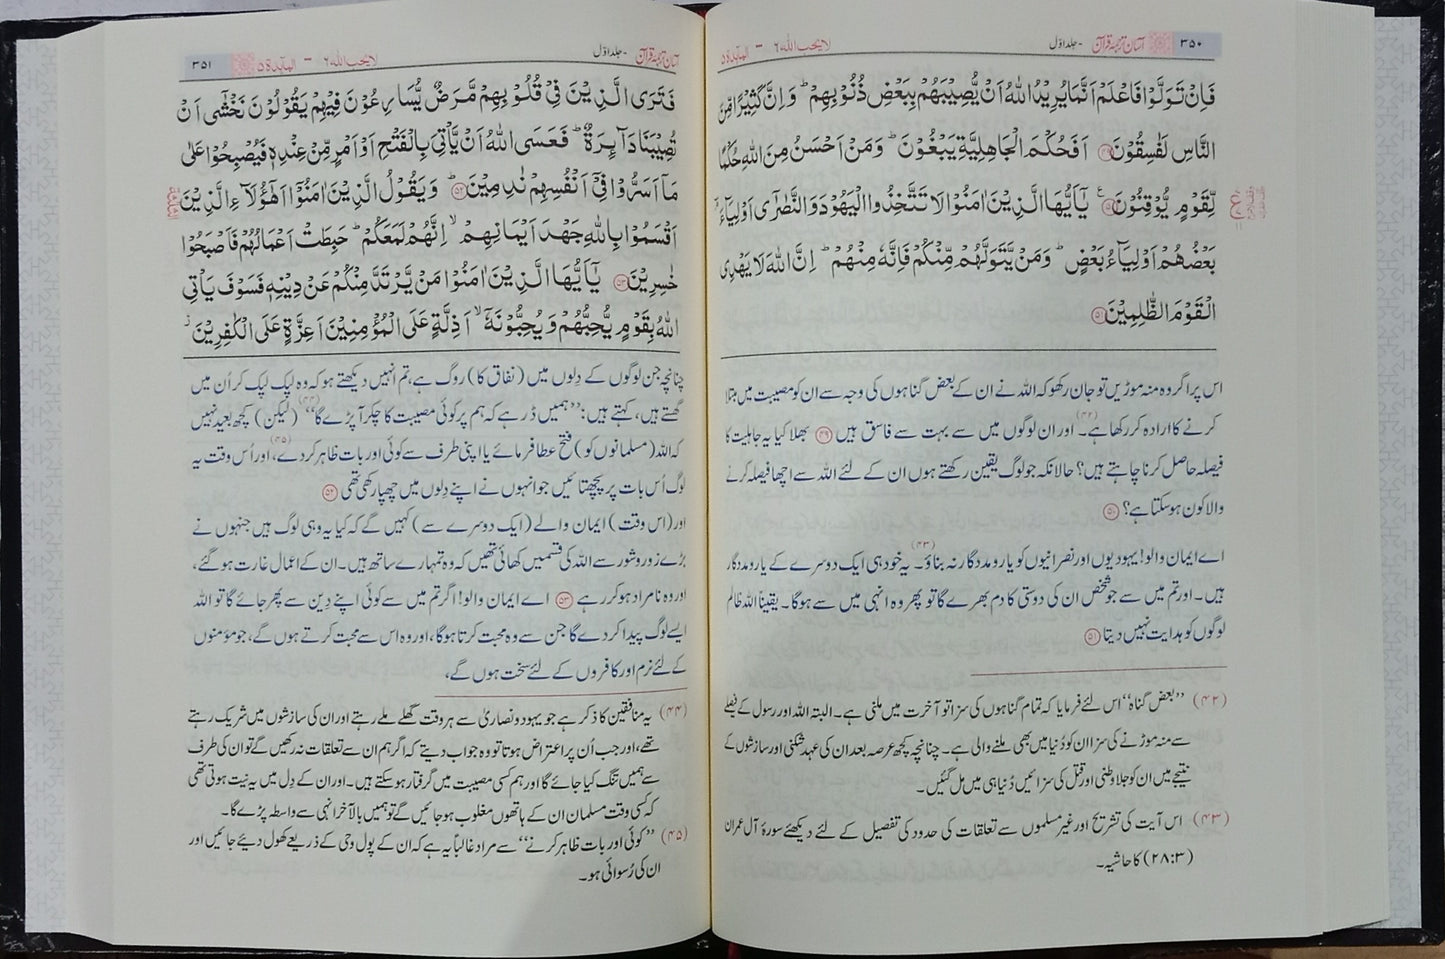 ۳۵۰ آسان ترجمۂ قرآن - جلد اوّل لا یحب اللہ ۶ - المآئدۃ ۵
فَاِنْ تَوَلَّوْا فَاعْلَمْ اَنَّمَا يُرِيْدُ اللّٰهُ اَنْ يُّصِيْبَهُمْ بِبَعْضِ ذُنُوْبِهِمْ ؕ وَ اِنَّ كَثِيْرًا مِّنَ
النَّاسِ لَفٰسِقُوْنَ ۴۹ اَفَحُكْمَ الْجَاهِلِيَّةِ يَبْغُوْنَ ؕ وَ مَنْ اَحْسَنُ مِنَ اللّٰهِ حُكْمًا
لِّقَوْمٍ يُّوْقِنُوْنَ ۵۰ يٰۤاَيُّهَا الَّذِيْنَ اٰمَنُوْا لَا تَتَّخِذُوا الْيَهُوْدَ وَ النَّصٰرٰۤى اَوْلِيَآءَ ۘ
بَعْضُهُمْ اَوْلِيَآءُ بَعْضٍ ؕ وَ مَنْ يَّتَوَلَّهُمْ مِّنْكُمْ فَاِنَّهٗ مِنْهُمْ ؕ اِنَّ اللّٰهَ لَا يَهْدِى
الْقَوْمَ الظّٰلِمِيْنَ ۵۱
اس پر اگر وہ منہ موڑیں تو جان رکھو کہ اللہ نے ان کے بعض گناہوں کی وجہ سے ان کو مصیبت میں مبتلا
کرنے کا ارادہ کر رکھا ہے۔ (۴۲) اور ان لوگوں میں سے بہت سے فاسق ہیں ۴۹ بھلا کیا یہ جاہلیت کا
فیصلہ حاصل کرنا چاہتے ہیں؟ حالانکہ جو لوگ یقین رکھتے ہوں ان کے لئے اللہ سے اچھا فیصلہ کرنے
والا کون ہوسکتا ہے؟ ۵۰
اے ایمان والو! یہودیوں اور نصرانیوں کو یار و مددگار نہ بناؤ۔ (۴۳) یہ خود ہی ایک دوسرے کے یار و مددگار
ہیں۔ اور تم میں سے جو شخص ان کی دوستی کا دم بھرے گا تو پھر وہ انہی میں سے ہوگا۔ یقیناً اللہ ظالم
لوگوں کو ہدایت نہیں دیتا ۵۱
(۴۲) ’’بعض گناہ‘‘ اس لئے فرمایا کہ تمام گناہوں کی سزا تو آخرت میں ملنی ہے۔ البتہ اللہ اور رسول کے فیصلے
سے منہ موڑنے کی سزا ان کو دُنیا میں بھی ملنے والی ہے۔ چنانچہ کچھ عرصہ بعد ان کی عہد شکنی اور سازشوں کے
نتیجے میں ان کو جلا وطنی اور قتل کی سزائیں دُنیا ہی میں مل گئیں۔
(۴۳) اس آیت کی تشریح اور غیر مسلموں سے تعلقات کی حدود کی تفصیل کے لئے دیکھئے سورۂ آل عمران
(۲۸:۳) کا حاشیہ۔
آسان ترجمۂ قرآن - جلد اوّل لا یحب اللہ ۶ - المآئدۃ ۵ ۳۵۱
فَتَرَى الَّذِيْنَ فِىْ قُلُوْبِهِمْ مَّرَضٌ يُّسَارِعُوْنَ فِيْهِمْ يَقُوْلُوْنَ نَخْشٰۤى اَنْ
تُصِيْبَنَا دَآئِرَةٌ ؕ فَعَسَى اللّٰهُ اَنْ يَّاْتِىَ بِالْفَتْحِ اَوْ اَمْرٍ مِّنْ عِنْدِهٖ فَيُصْبِحُوْا عَلٰى
مَاۤ اَسَرُّوْا فِىْۤ اَنْفُسِهِمْ نٰدِمِيْنَ ۵۲ ؕ وَ يَقُوْلُ الَّذِيْنَ اٰمَنُوْۤا اَهٰۤؤُلَآءِ الَّذِيْنَ
اَقْسَمُوْا بِاللّٰهِ جَهْدَ اَيْمَانِهِمْ ۙ اِنَّهُمْ لَمَعَكُمْ ؕ حَبِطَتْ اَعْمَالُهُمْ فَاَصْبَحُوْا
خٰسِرِيْنَ ۵۳ يٰۤاَيُّهَا الَّذِيْنَ اٰمَنُوْا مَنْ يَّرْتَدَّ مِنْكُمْ عَنْ دِيْنِهٖ فَسَوْفَ يَاْتِى
اللّٰهُ بِقَوْمٍ يُّحِبُّهُمْ وَ يُحِبُّوْنَهٗۤ ۙ اَذِلَّةٍ عَلَى الْمُؤْمِنِيْنَ اَعِزَّةٍ عَلَى الْكٰفِرِيْنَ ؗ
چنانچہ جن لوگوں کے دِلوں میں (نفاق کا) روگ ہے، تم انہیں دیکھتے ہو کہ وہ لپک لپک کر اُن میں
گھستے ہیں، کہتے ہیں: ’’ہمیں ڈر ہے کہ ہم پر کوئی مصیبت کا چکر آپڑے گا‘‘ (۴۴) (لیکن) کچھ بعید نہیں
کہ اللہ (مسلمانوں کو) فتح عطا فرمائے یا اپنی طرف سے کوئی اور بات ظاہر کردے، (۴۵) اور اُس وقت یہ
لوگ اُس بات پر پچھتائیں جو انہوں نے اپنے دِلوں میں چھپا رکھی تھی ۵۲
اور (اس وقت) ایمان والے (ایک دوسرے سے) کہیں گے کہ کیا یہ وہی لوگ ہیں جنہوں نے
بڑے زور و شور سے اللہ کی قسمیں کھائی تھیں کہ وہ تمہارے ساتھ ہیں۔ ان کے اعمال غارت ہوگئے،
اور وہ نامراد ہو کر رہے ۵۳ اے ایمان والو! اگر تم میں سے کوئی اپنے دِین سے پھر جائے گا تو اللہ
ایسے لوگ پیدا کردے گا جن سے وہ محبت کرتا ہوگا، اور وہ اس سے محبت کرتے ہوں گے، جو مؤمنوں
کے لئے نرم اور کافروں کے لئے سخت ہوں گے،
(۴۴) یہ منافقین کا ذکر ہے جو یہود و نصاریٰ سے ہر وقت گھلے ملے رہتے اور ان کی سازشوں میں شریک رہتے
تھے، اور جب اُن پر اعتراض ہوتا تو وہ جواب دیتے کہ اگر ہم ان سے تعلقات نہ رکھیں گے تو ان کی طرف
سے ہمیں تنگ کیا جائے گا اور ہم کسی مصیبت میں گرفتار ہوسکتے ہیں۔ اور ان کے دِل میں یہ نیت ہوتی تھی
کہ کسی وقت مسلمان ان کے ہاتھوں مغلوب ہوجائیں گے تو ہمیں بالآخر انہی سے واسطہ پڑے گا۔
(۴۵) ’’کوئی اور بات ظاہر کرنے‘‘ سے مراد غالباً یہ ہے کہ ان کے پول وحی کے ذریعے کھول دیئے جائیں اور
ان کی رُسوائی ہو۔